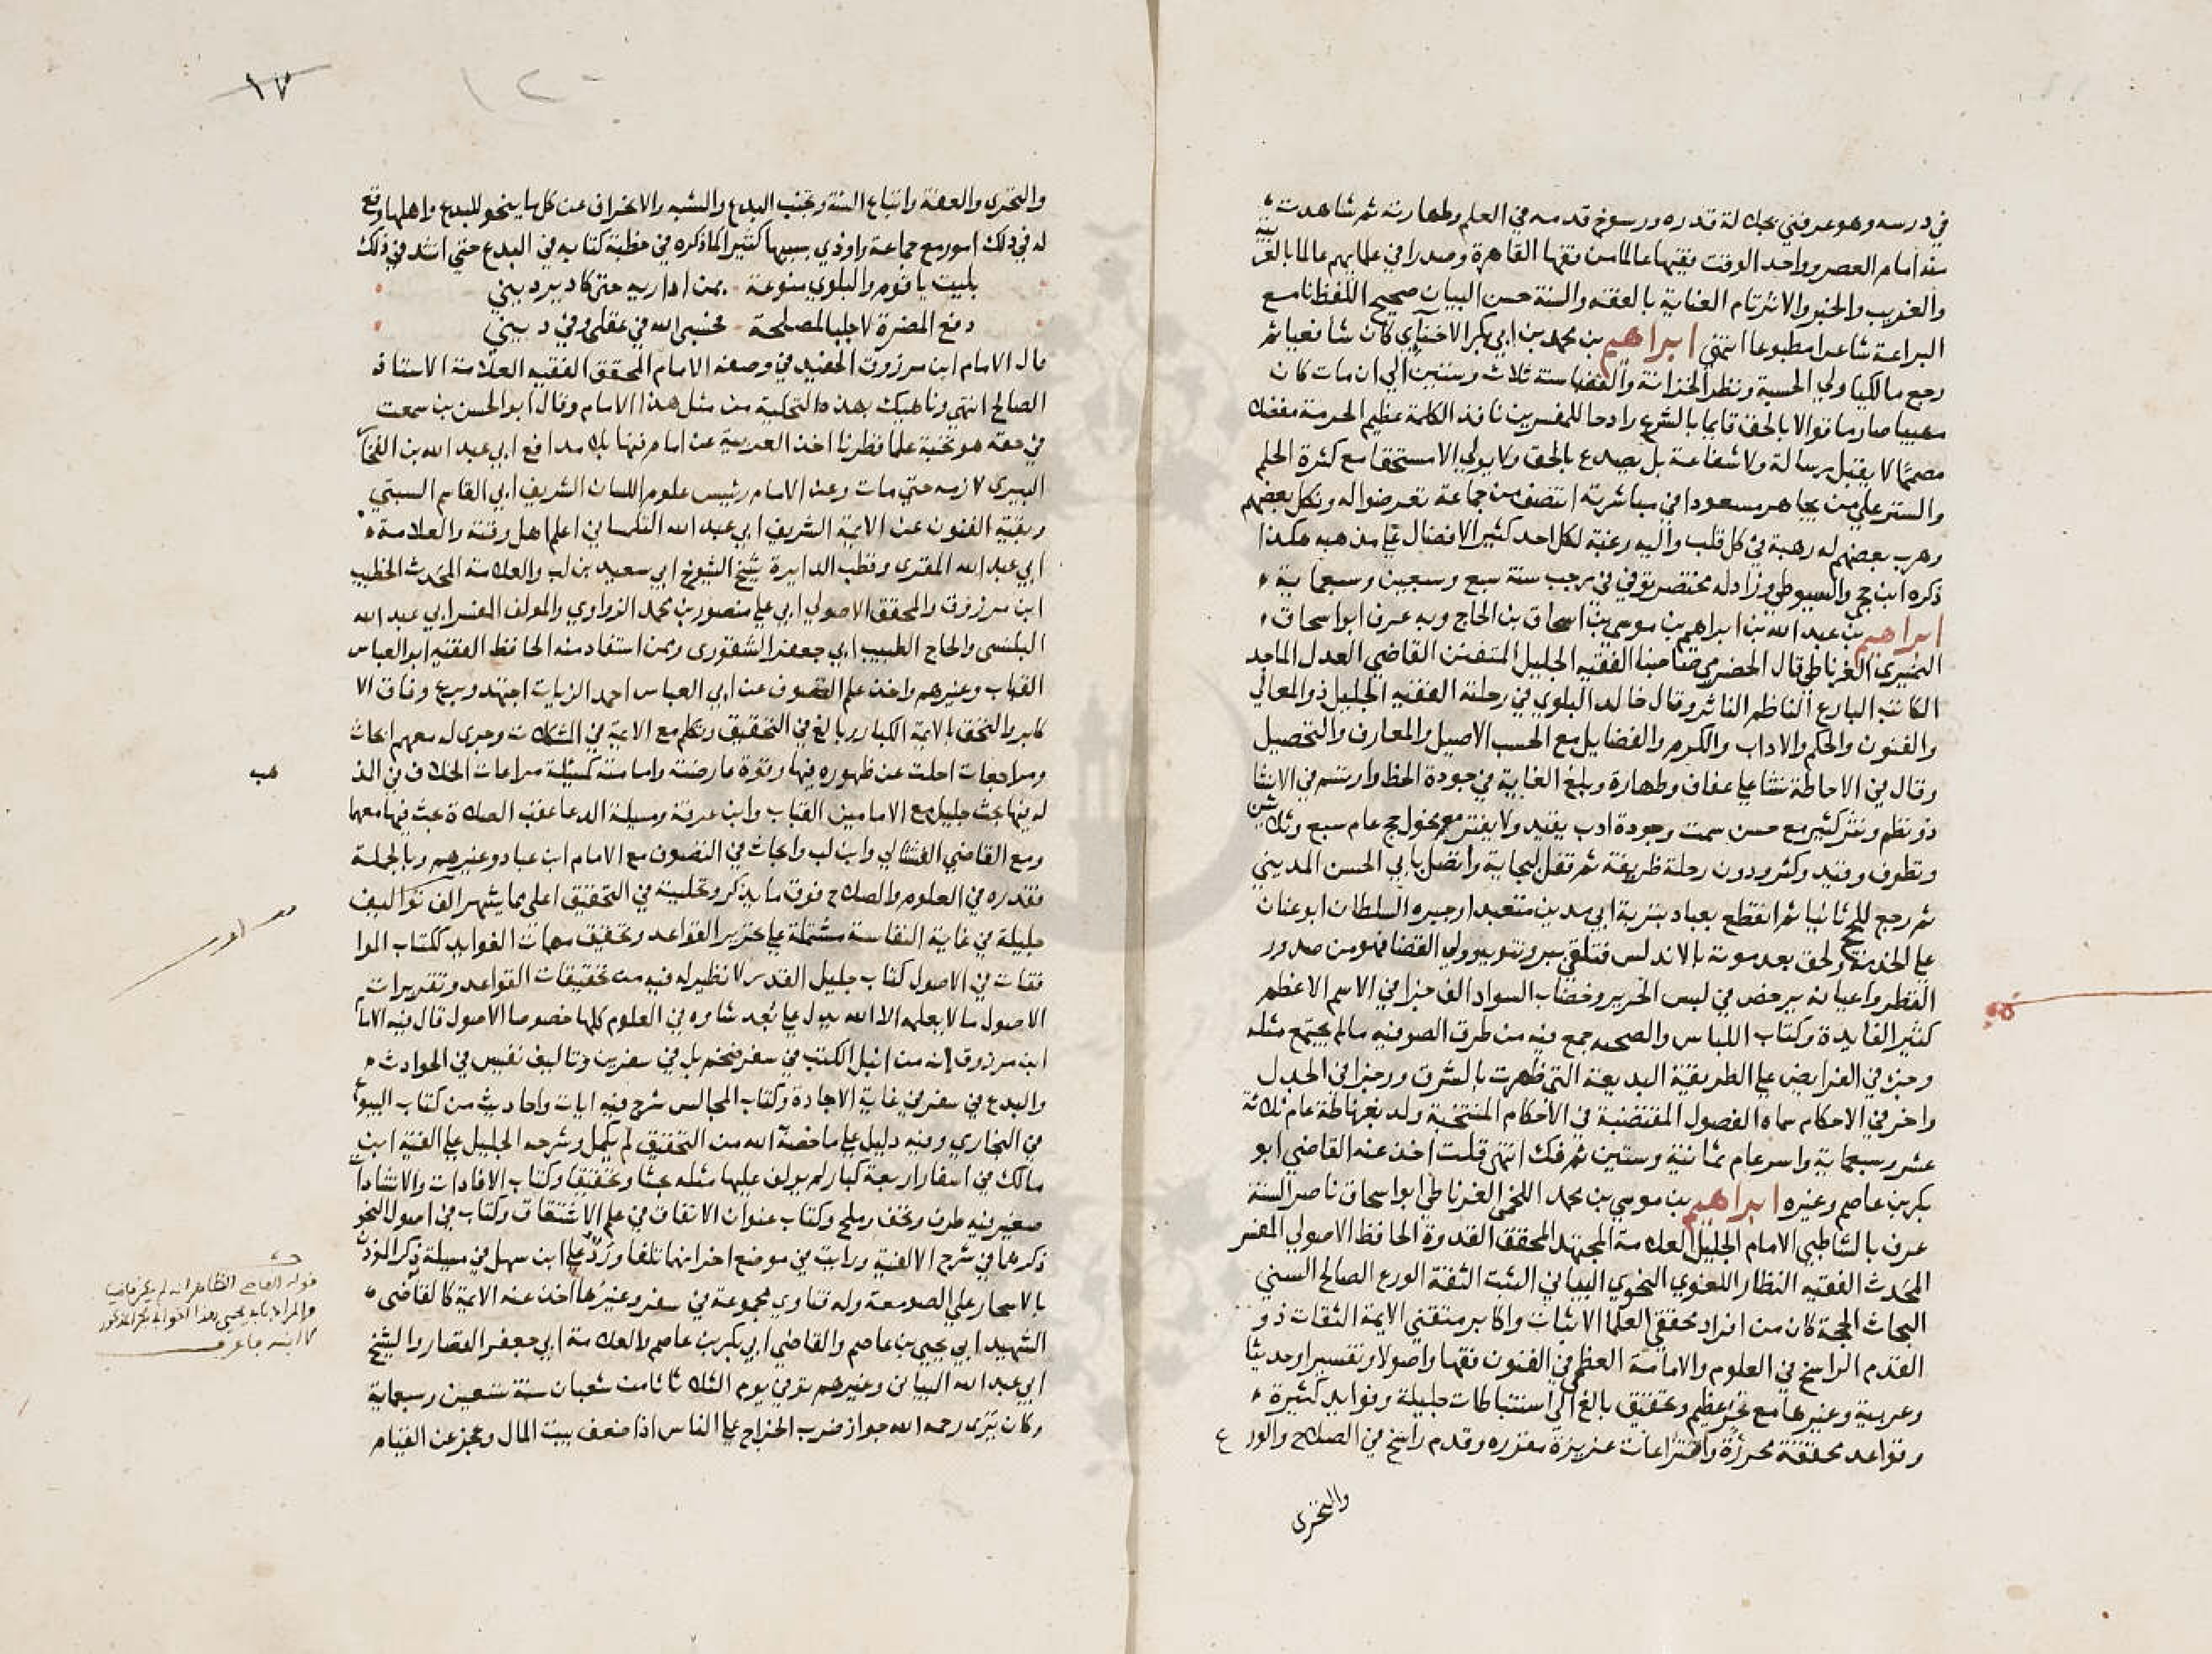 في درسه وهو عرفني بجلالة قدره ورسوخ قدمه في العلم وطهارته ثم شاهدت بقية
منه امام العصر وواحد الوقت فقيها عالما من فقها القاهرة وصدرا في علمايهم عالما بالعر
والغريب والخبر والاثر تام العناية بالفقه والسنة حسن البيان صحيح اللفظ نا مع
البراعة شاعرا مطبوعا انتهي ابراهيم بن محمد بن ابي بكر الاخنآي كان شافعيا ثم
رجع مالكيا ولي الحسبة ونظر الخزانة والقضا سنة ثلاث وستين الي ان مات كان
مهيبا صارما قوالا بالحق قايما بالشرع رادحا للمفسرين نافذ الكلمة عظيم الحرمة مفضلا
مصمما لا يقبل رسالة ولا شفاعة بل يصدع بالحق ولا يولي الا مستحقا مع كثرة الحلم
والستر علي من يجاهر مسعودا في مباشرته انتصف من جماعة تعرضوا له ونكل بعضهم
وهرب بعضهم له رهبة في كل قلب واليه رغبة لكل احد كثير الافضال علي مذهبه هكذا
ذكره ابن حجي والسيوطي وزاد له مختصر توفي في رجب سنة سبع وسبعين وسبعماية
ابراهيم بن عبد الله بن ابراهيم بن موسي بن اسحاق بن الحاج وبه عرف ابو اسحاق
النميري الغرناطي قال الحضرمي صاحبنا الفقيه الجليل المتفنن القاضي العدل الماجد
الكاتب البارع الناظم الناثر وقال خالد البلوي في رحلته الفقيه الجليل ذو المعالي
والفنون والحكم والاداب والكرم والفضايل مع الحسب الاصيل والمعارف والتحصيل
وقال في الاحاطة نشا علي عفاف وطهارة وبلغ الغاية في جودة الخط وارتسم في الانشا
ذو نظم ونثر كثير مع حسن سمت وجودة ادب يفيد ولا يفتر مع نحول حج عام سبع وثلاثين
وتطوف وقيد وكثر ودون رحلة ظريفة ثم قفل لبجاية واتصل بابي الحسن المديني
ثم رجع للحج ثانيا ثم انقطع بعباد بتربة ابي مدين متعبدا وجبره السلطان ابو عنان
علي الخدمة ولحق بعد موته بالاندلس فتلقي ببر وتنويه وولي القضا فهو من صدور
القطر واعيانه يرخص في لبس الحرير وخضاب السواد الف جزا في الاسم الاعظم
كثير الفايدة وكتاب اللباس والصحبه جمع فيه من طرق الصوفيه مالم يجتمع مثله
وجزء في الفرايض علي الطريقة البديعة التي ظهرت بالمشرق ورجزا في الجدل
واخر في الاحكام سماه الفصول المقتضبة في الاحكام المنتخبة ولد بغرناطة عام ثلاثة
عشر وسبعماية واسر عام ثمانية وستين ثم فك انتهي قلت اخذ عنه القاضي ابو
بكر بن عاصم وغيره ابراهيم بن موسي بن محمد اللخمي الغرناطي ابو اسحاق ناصر السنة
عرف بالشاطبي الامام الجليل العلامة المجتهد المحقق القدوة الحافظ الاصولي المفسر
المحدث الفقيه النظار اللغوي النحوي البياني الثبت الثقة الورع الصالح السني
البحاث الحجة كان من افراد محققي العلما الاثبات واكابر متقني الايمة الثقات ذو
القدم الراسخ في العلوم والامامة العظمي في الفنون فقها واصولا وتفسيرا وحديثا
وعربية وغيرها مع تحر عظيم وتحقيق بالغ الي استنباطات جليلة وفوايد كثيرة
وقواعد محققة محررة واقتراعات عزيزة مقرره وقدم راسخ في الصلاح والورع
والتحري
١٧
١٢٠
والتحري والعفة واتباع السنة وتجنب البدع والشبه والانحراف عن كل ما ينحو للبدع واهلها وقع
له في ذلك امور مع جماعة واوذي بسببها كثيرا كما ذكره في خطبة كتابه في البدع حتي انشد في ذلك
بليت يا قوم والبلوي منوعة بمن اداريه حتي كاد يرديني
دفع المضرة لا جلبا لمصلحة فحسبي الله في عقلي وفي ديني
قال الامام ابن مرزوق الحفيد في وصفه الامام المحقق الفقيه العلامة الاستاذ
الصالح انتهي وناهيك بهذه التحلية من مثل هذا الامام وقال ابو الحسن بن سمعت
في حقه هو نخبة علما قطرنا اخذ العربية عن امام فنها بلا مدافع ابي عبد الله بن الفخار
البيري لازمه حتي مات وعن الامام رئيس علوم اللسان الشريف ابي القاسم السبتي
وبقية الفنون عن الايمة الشريف ابي عبد الله التلمساني اعلم اهل وقته والعلامة
ابي عبد الله المقري وقطب الدايرة شيخ الشيوخ ابي سعيد بن لب والعلامة المحدث الخطيب
ابن مرزوق والمحقق الاصولي ابي علي منصور بن محمد الزواوي والمولف المفسر ابي عبد الله
البلنسي والحاج الطبيب ابي جعفر الشقوري وممن استفاد منه الحافظ الفقيه ابو العباس
القباب وغيرهم واخذ علم التصوف عن ابي العباس احمد الزيات اجتهد وبرع وفاق الا
كابر والتحق بالايمة الكبار وبالغ في التحقيق وتكلم مع الايمة في المشكلات وجري له معهم ابحاث
ومراجعات اجلت عن ظهوره فيها وقوة عارضته وامامته كمسئلة مراعات الخلاف في المذ
هب
له فيها بحث جليل مع الامامين القباب وابن عرفة ومسيلة الدعا عقب الصلاة بحث فيها معهما
ومع القاضي الفشتالي وابن لب وابحاث في التصوف مع الامام ابن عباد وغيرهم وبالجملة
فقدره في العلوم والصلاح فوق ما يذكر وتحليته في التحقيق اعلي مما يشهر الف تواليف
جليلة في غاية النفاسة مشتملة علي تحرير القواعد وتحقيق مهمات الفوايد ككتاب الموا
فقات في الاصول كتاب جليل القدر لا نظير له فيه من تحقيقات القواعد وتقريرات
الاصول ما لا يعلمه الا الله يدل علي بُعد شاوه في العلوم كلها خصوصا الاصول قال فيه الاما
ابن مرزوق انه من انبل الكتب في سفر ضخم بل في سفرين وتاليف نفيس في الحوادث
والبدع في سفر في غاية الاجادة وكتاب المجالس شرح فيه ايات واحاديث من كتاب البيوع
في البخاري وفيه دليل علي ما خصه الله من التحقيق لم يكمل وشرحه الجليل علي الفية ابن
مالك في اسفار اربعة كبار لم يولف عليها مثله بحثا وتحقيقا وكتاب الافادات والانشادات
صغير فيه طرف وتحف وملح وكتاب عنوان الاتفاق في علم الاشتقاق وكتاب في اصول النحو
ذكرهما في شرح الالفية ورايت في موضع اخر انهما تلفا وردّ علي ابن سهل في مسيلة ذكر المؤذن
بالاسحار علي الصومعة وله فتاوي مجموعة في سفر وغيرها اخذ عنه الايمة كالقاضي
الشهيد ابي يحيي بن عاصم والقاضي ابي بكر بن عاصم والعلامة ابي جعفر القصار والشيخ
ابي عبد الله البياني وغيرهم توفي يوم الثلاثا ثامن شعبان سنة تسعين وسبعماية
وكان يرى رحمه الله جواز ضرب الخراج علي الناس اذا ضعف بيت المال وعجز عن القيام
قوله القاضي الظاهر انه لم يكن قاضيا